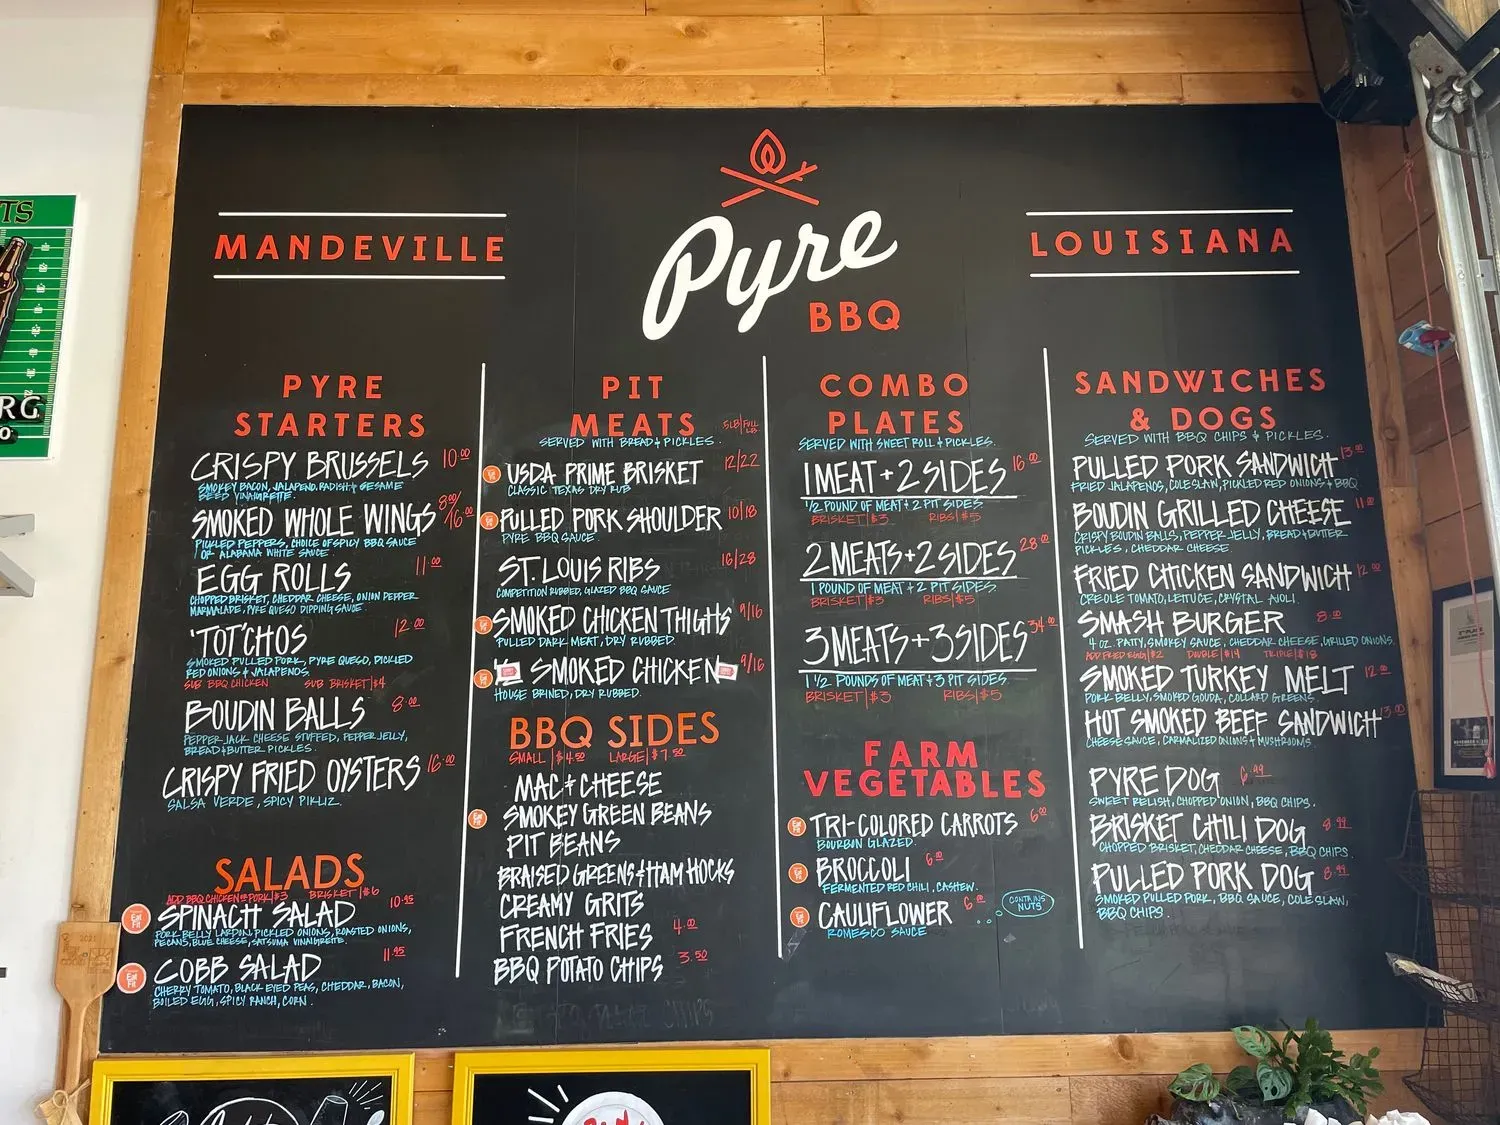 TS
RG
MANDEVILLE
Pyre
BBQ
LOUISIANA
PYRE
STARTERS
CRISPY BRUSSELS 10.00
SMOKEY BACON, JALAPENO, RADISH & SESAME
SEED VINAIGRETTE.
SMOKED WHOLE WINGS 8.00/16.00
PICKLED PEPPERS, CHOICE OF SPICY BBQ SAUCE
OR ALABAMA WHITE SAUCE
EGG ROLLS 11.00
CHOPPED BRISKET, CHEDDAR CHEESE, ONION PEPPER
MARMALADE, PYRE QUESO DIPPING SAUCE
'TOT'CHOS 12.00
SMOKED PULLED PORK, PYRE QUESO, PICKLED
RED ONIONS & JALAPENOS
SUB BBQ CHICKEN SUB BRISKET|$4
BOUDIN BALLS 8.00
PEPPER JACK CHEESE STUFFED, PEPPER JELLY,
BREAD & BUTTER PICKLES.
CRISPY FRIED OYSTERS 16.00
SALSA VERDE, SPICY PIKLIZ.
SALADS
ADD BBQ CHICKEN OR PORK|$3 BRISKET|$6
SPINACH SALAD 10.95
PORK BELLY LARDIN, PICKLED ONIONS, ROASTED ONIONS,
PECANS, BLUE CHEESE, SATSUMA VINAIGRETTE.
COBB SALAD 11.95
CHERRY TOMATO, BLACK EYED PEAS, CHEDDAR, BACON,
BOILED EGG, SPICY RANCH, CORN.
Eat Fit
Eat Fit
PIT
MEATS
SERVED WITH BREAD & PICKLES.
USDA PRIME BRISKET 12/22
CLASSIC TEXAS DRY RUB
PULLED PORK SHOULDER 10/18
PYRE BBQ SAUCE
ST. LOUIS RIBS 16/28
COMPETITION RUBBED, GLAZED BBQ SAUCE
SMOKED CHICKEN THIGHS 9/16
PULLED DARK MEAT, DRY RUBBED
SMOKED CHICKEN 9/16
HOUSE BRINED, DRY RUBBED.
BBQ SIDES
SMALL|$4.50 LARGE|$7.50
MAC & CHEESE
SMOKEY GREEN BEANS
PIT BEANS
BRAISED GREENS & HAM HOCKS
CREAMY GRITS
FRENCH FRIES 4.00
BBQ POTATO CHIPS 3.50
COMBO
PLATES
SERVED WITH SWEET ROLL & PICKLES.
1 MEAT + 2 SIDES 16.00
1/2 POUND OF MEAT + 2 PIT SIDES.
BRISKET|$3 RIBS|$5
2 MEATS + 2 SIDES 28.00
1 POUND OF MEAT + 2 PIT SIDES.
BRISKET|$3 RIBS|$5
3 MEATS + 3 SIDES 34.00
1 1/2 POUNDS OF MEAT + 3 PIT SIDES
BRISKET|$3 RIBS|$5
FARM
VEGETABLES
TRI-COLORED CARROTS 6.00
BOURBON GLAZED.
BROCCOLI 6.00
FERMENTED RED CHILI, CASHEW.
CAULIFLOWER 6.00
ROMESCO SAUCE
CONTAINS
NUTS
SANDWICHES
& DOGS
SERVED WITH BBQ CHIPS & PICKLES.
PULLED PORK SANDWICH 13.00
FRIED JALAPENOS, COLESLAW, PICKLED RED ONIONS & BBQ
BOUDIN GRILLED CHEESE 11.00
CRISPY BOUDIN BALLS, PEPPER JELLY, BREAD & BUTTER
PICKLES, CHEDDAR CHEESE.
FRIED CHICKEN SANDWICH 12.00
CREOLE TOMATO, LETTUCE, CRYSTAL AIOLI.
SMASH BURGER 8.00
4 OZ. PATTY, SMOKEY SAUCE, CHEDDAR CHEESE, GRILLED ONIONS
ADD FRIED EGG|$2 DOUBLE|$14 TRIPLE|$18
SMOKED TURKEY MELT 12.00
PORK BELLY, SMOKED GOUDA, COLLARD GREENS
HOT SMOKED BEEF SANDWICH 13.00
CHEESE SAUCE, CARMALIZED ONIONS & MUSHROOMS.
PYRE DOG 6.99
SWEET RELISH, CHOPPED ONION, BBQ CHIPS.
BRISKET CHILI DOG 8.99
CHOPPED BRISKET, CHEDDAR CHEESE, BBQ CHIPS.
PULLED PORK DOG 8.99
SMOKED PULLED PORK, BBQ SAUCE, COLESLAW,
BBQ CHIPS.
2021